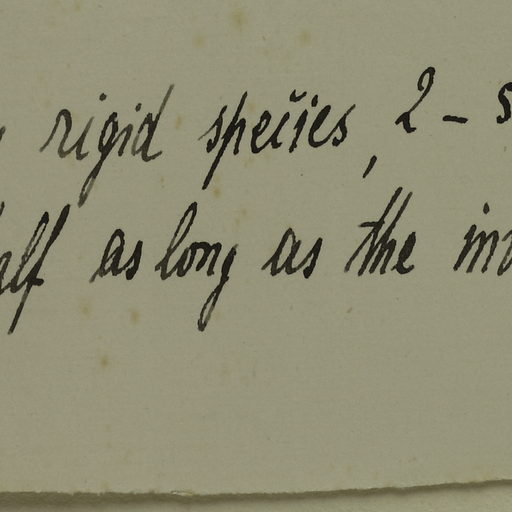 rigid species, 2 – 5
half as long as the in